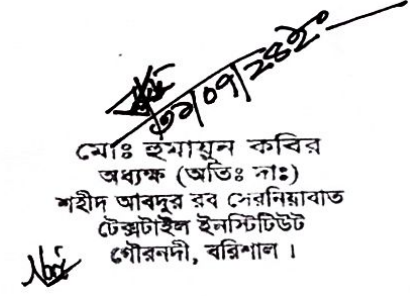 মোঃ হুমায়ুন কবির
অধ্যক্ষ (অতিঃ দাঃ)
শহীদ আবদুর রব সেরনিয়াবাত
টেক্সটাইল ইনস্টিটিউট
গৌরনদী, বরিশাল ।